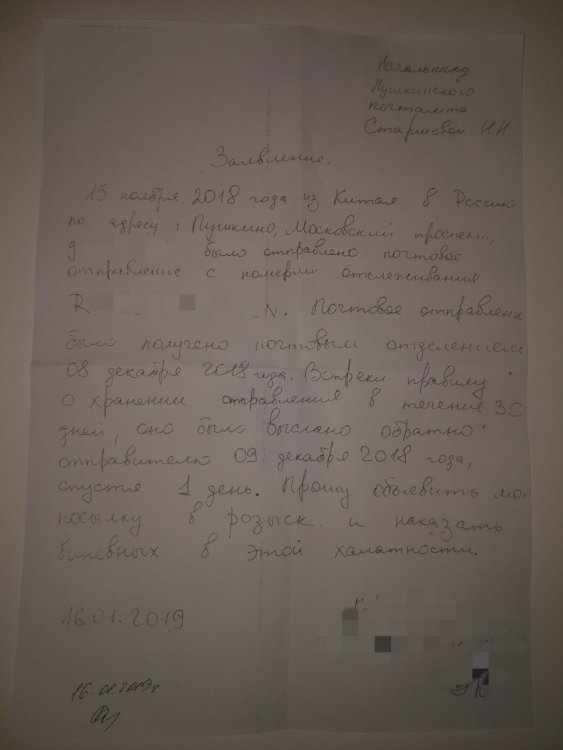 Начальнику
Пушкинского
почтамта
Старшовой И.И
Заявление.
15 ноября 2018 года из Китая в Россию
по адресу г Пушкино, Московский проспект,
д было отправлено почтовое
отправление с номером отслеживания
R N. Почтовое отправлени
было получено почтовым отделением
08 декабря 2018 года. Вопреки правилу
о хранении отправления в течение 30
дней, оно было выслано обратно
отправителю 09 декабря 2018 года,
спустя 1 день. Прошу объявить мо
посылку в розыск и наказать
виновных в этой халатности.
16.01.2019
16.01.2019г